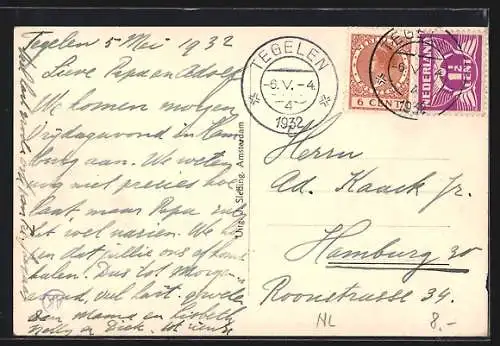 Tegelen 5 Mei 1932
Lieve Papa en Adolf
We komen morgen
Vrijdagavond in Ham
burg aan. We weten
nog niet precies hoe
laat, maar Papa
het wel nazien. We ho
pen dat jullie ons af komen
halen. Dus tot Morgen
avond, veel
aan Mama en Liesbeth
Nelly en Dick.
Uitg. Sleding, Amsterdam
TEGELEN
-6.V.-4
4
1932
6 CENT
TEGELEN
-6.V.
4
1932
NEDERLAND
1½
CENT
Herrn
Ad. Kaack Jr.
Hamburg 30
Roonstrasse 34.
NL
8.-